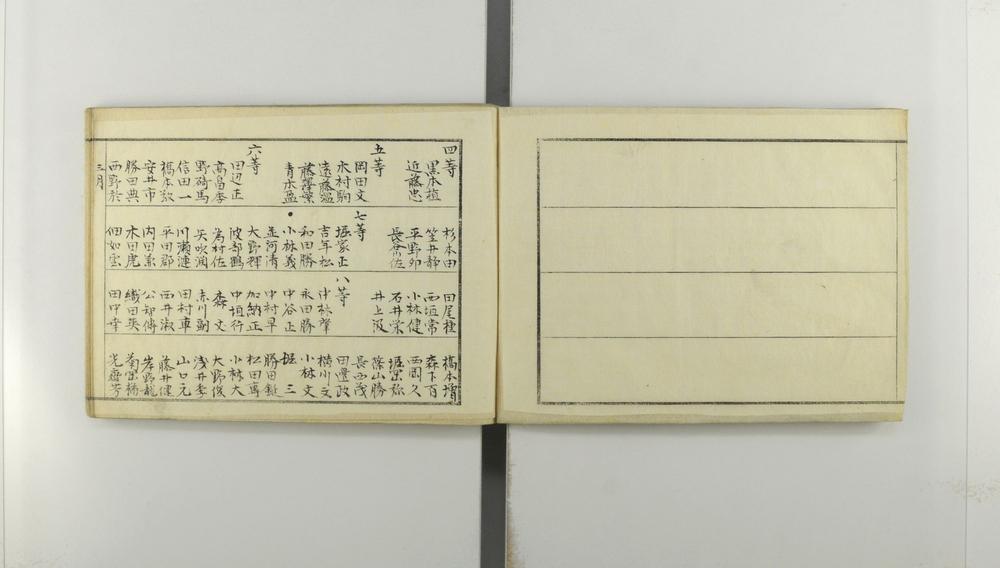 四等
黒本植
近藤忠
五等
岡田文
木村駒
遠藤
藤澤榮
青木盈
六等
田辺正
高畠
野崎馬
信田一
橋本
安井市
勝田典
西野於
三月
杉本田
笠井静
平野卯
長谷川佐
七等
堀家正
吉年松
和田勝
小林義
並河清
大野輝
渡部鶴
為村佐
矢吹潤
川瀬漣
平田郡
内田兼
木田虎
佃如雲
田尾種
西垣常
小林健
石井栄
井上汲
八等
中林肇
永田勝
中谷正
中村早
加納正
中垣行
森 文
赤川副
田村専
西井淑
公知傳
織田英
田中幸
橋本增
森下百
西岡久
篠山勝
長西茂
田邉政
横川文
小林文
堀 三
勝田
松田専
小林大
大野俊
浅井季
山口元
藤井健
岸野龍
光齋芳